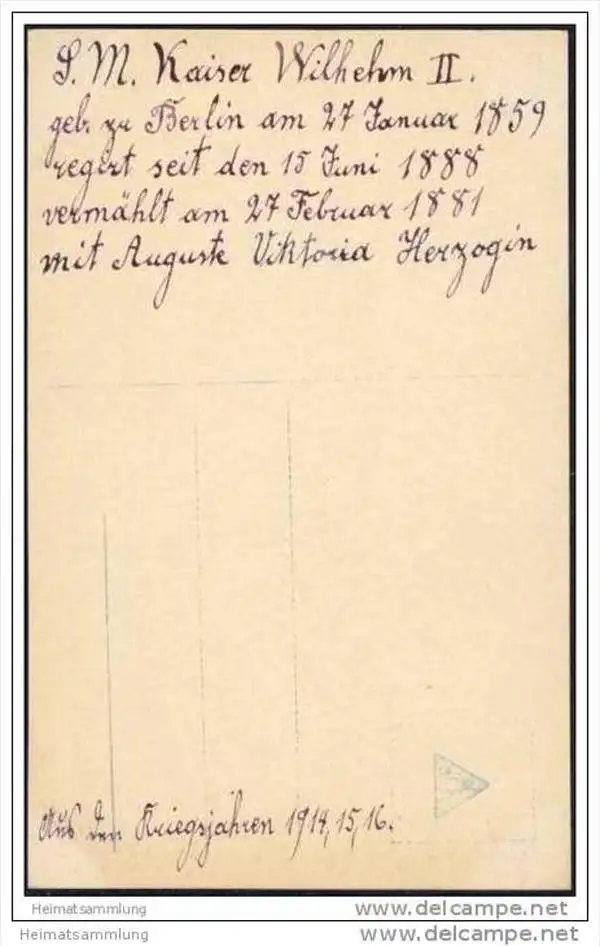 S. M. Kaiser Wilhelm II.
geb. zu Berlin am 27 Januar 1859
regirt seit den 15 Juni 1888
vermählt am 27 Februar 1881
mit Auguste Viktoria Herzogin
Aus den Kriegsjahren 1914, 15, 16.
Heimatsammlung
www.delcampe.net
Heimatsammlung
www.delcampe.net